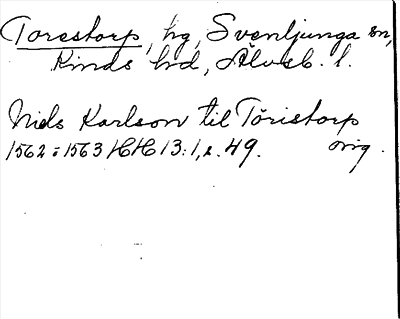 Torestorp, hg, Svenljunga sn,
Kinds hd, Älvsb. l.
Niels Karlson til Töristorp
1562-1563 HH 13:1, s. 49. orig.